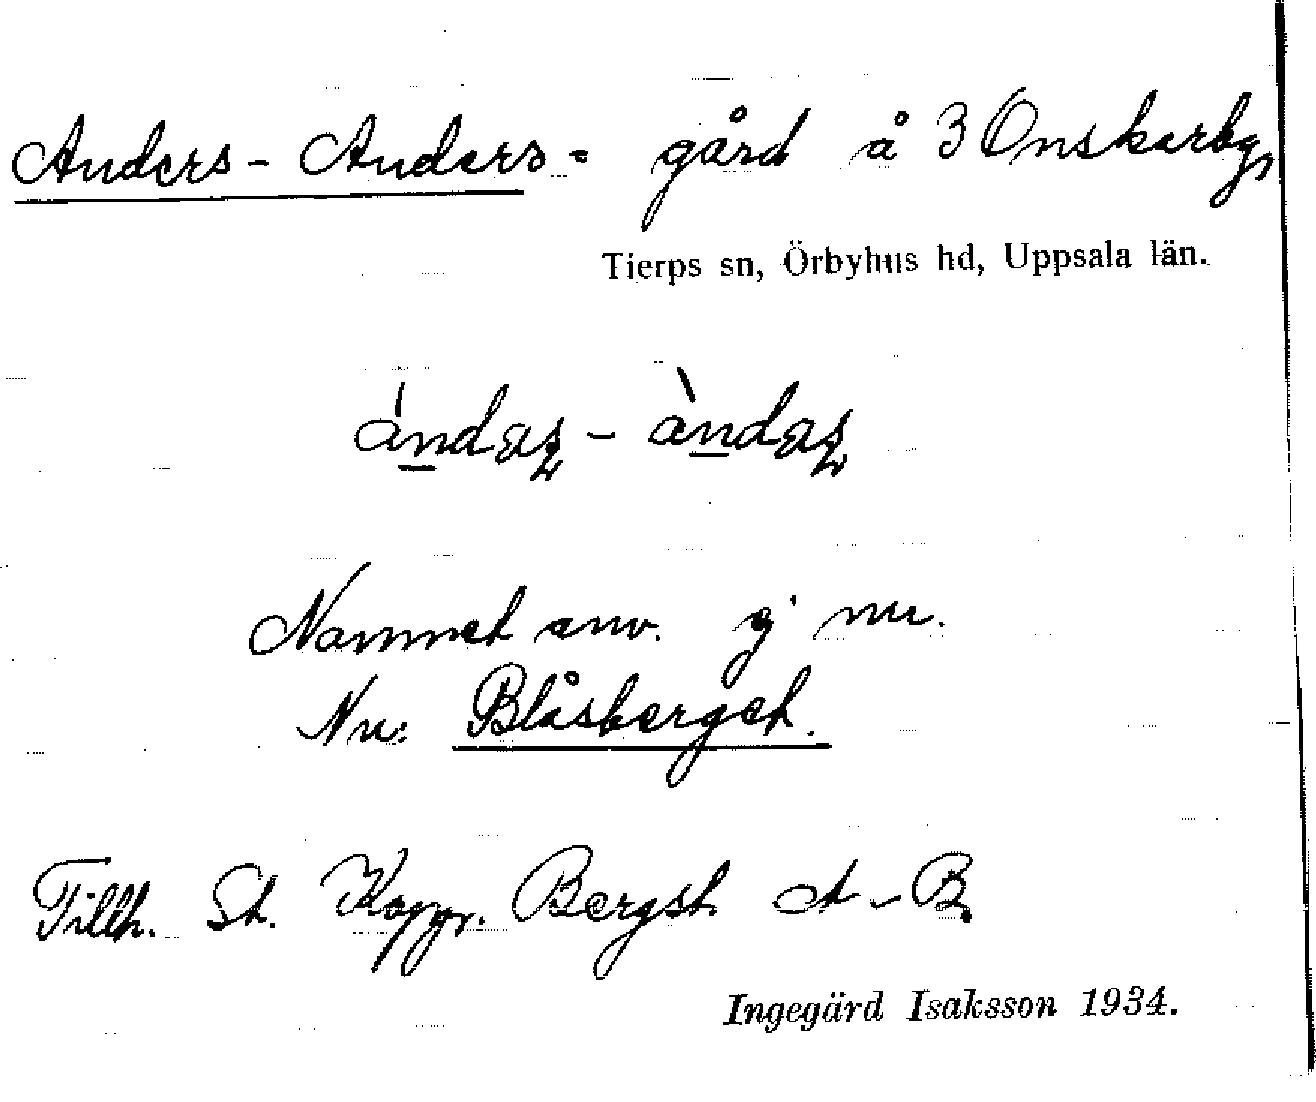 Anders-Anders- gård å 3 Onskarby,
Tierps sn, Örbyhus hd, Uppsala län.
Namnet anv. ej nu.
Nu: Blåsberget.
Tillh. St. Koppr. Bergsl. A-B.
Ingegärd Isaksson 1934.